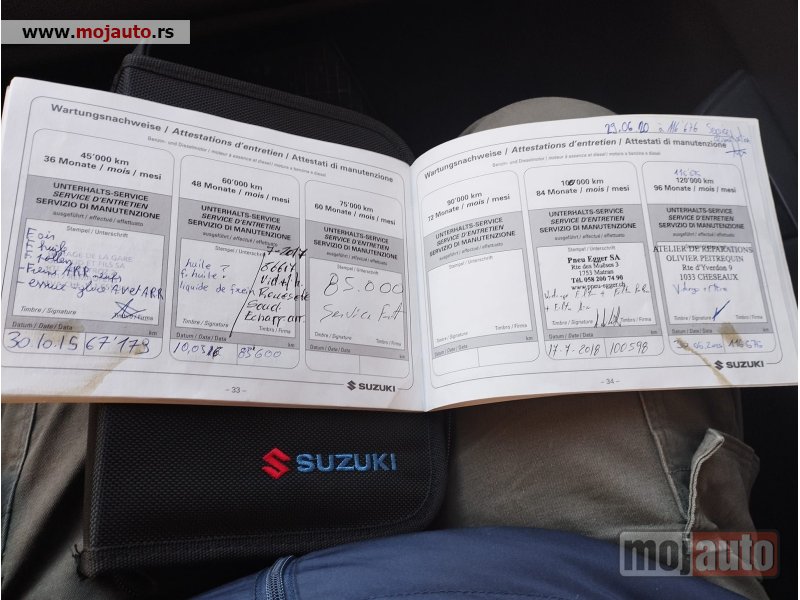 www.mojauto.rs
Wartungsnachweise / Attestations d'entretien / Attestati di manutenzione
Benzin- und Dieselmotor / moteur à essence et diesel / motore a benzina e diesel
45'000 km
36 Monate / mois / mesi
UNTERHALTS-SERVICE
SERVICE D'ENTRETIEN
SERVIZIO DI MANUTENZIONE
ausgeführt / effectué / effettuato
Stempel / Unterschrift
F huile
F pollen
Timbre / Signature
Timbro / Firma
Datum / Date / Data
km
30.10.15 67'173
60'000 km
48 Monate / mois / mesi
UNTERHALTS-SERVICE
SERVICE D'ENTRETIEN
SERVIZIO DI MANUTENZIONE
ausgeführt / effectué / effettuato
Stempel / Unterschrift
7-2017
huile ?
f. huile -
liquide de frein
Timbre / Signature
Timbro / Firma
Datum / Date / Data
km
75'000 km
60 Monate / mois / mesi
UNTERHALTS-SERVICE
SERVICE D'ENTRETIEN
SERVIZIO DI MANUTENZIONE
ausgeführt / effectué / effettuato
Stempel / Unterschrift
85.000
Service
Timbre / Signature
Timbro / Firma
Datum / Date / Data
km
SUZUKI
- 33 -
29.06 20 à 116 676 Service
Wartungsnachweise / Attestations d'entretien / Attestati di manutenzione
Benzin- und Dieselmotor / moteur à essence et diesel / motore a benzina e diesel
90'000 km
72 Monate / mois / mesi
UNTERHALTS-SERVICE
SERVICE D'ENTRETIEN
SERVIZIO DI MANUTENZIONE
ausgeführt / effectué / effettuato
Stempel / Unterschrift
Timbre / Signature
Timbro / Firma
Datum / Date / Data
km
84 Monate / mois / mesi
UNTERHALTS-SERVICE
SERVICE D'ENTRETIEN
SERVIZIO DI MANUTENZIONE
ausgeführt / effectué / effettuato
Stempel / Unterschrift
Pneu Egger SA
Rte des Muëses 3
1753 Matran
Tél 058 200 74 90
www.pneu-egger.ch
Timbre / Signature
Timbro / Firma
Datum / Date / Data
km
17-7-2018 100598
120'000 km
96 Monate / mois / mesi
UNTERHALTS-SERVICE
SERVICE D'ENTRETIEN
SERVIZIO DI MANUTENZIONE
ausgeführt / effectué / effettuato
ATELIER DE REPARATIONS
OLIVIER PEITREQUIN
Rte d'Yverdon 9
1033 CHESEAUX
Timbre / Signature
Timbro / Firma
Datum / Date / Data
km
116 676
SUZUKI
- 34 -
SUZUKI
mojauto